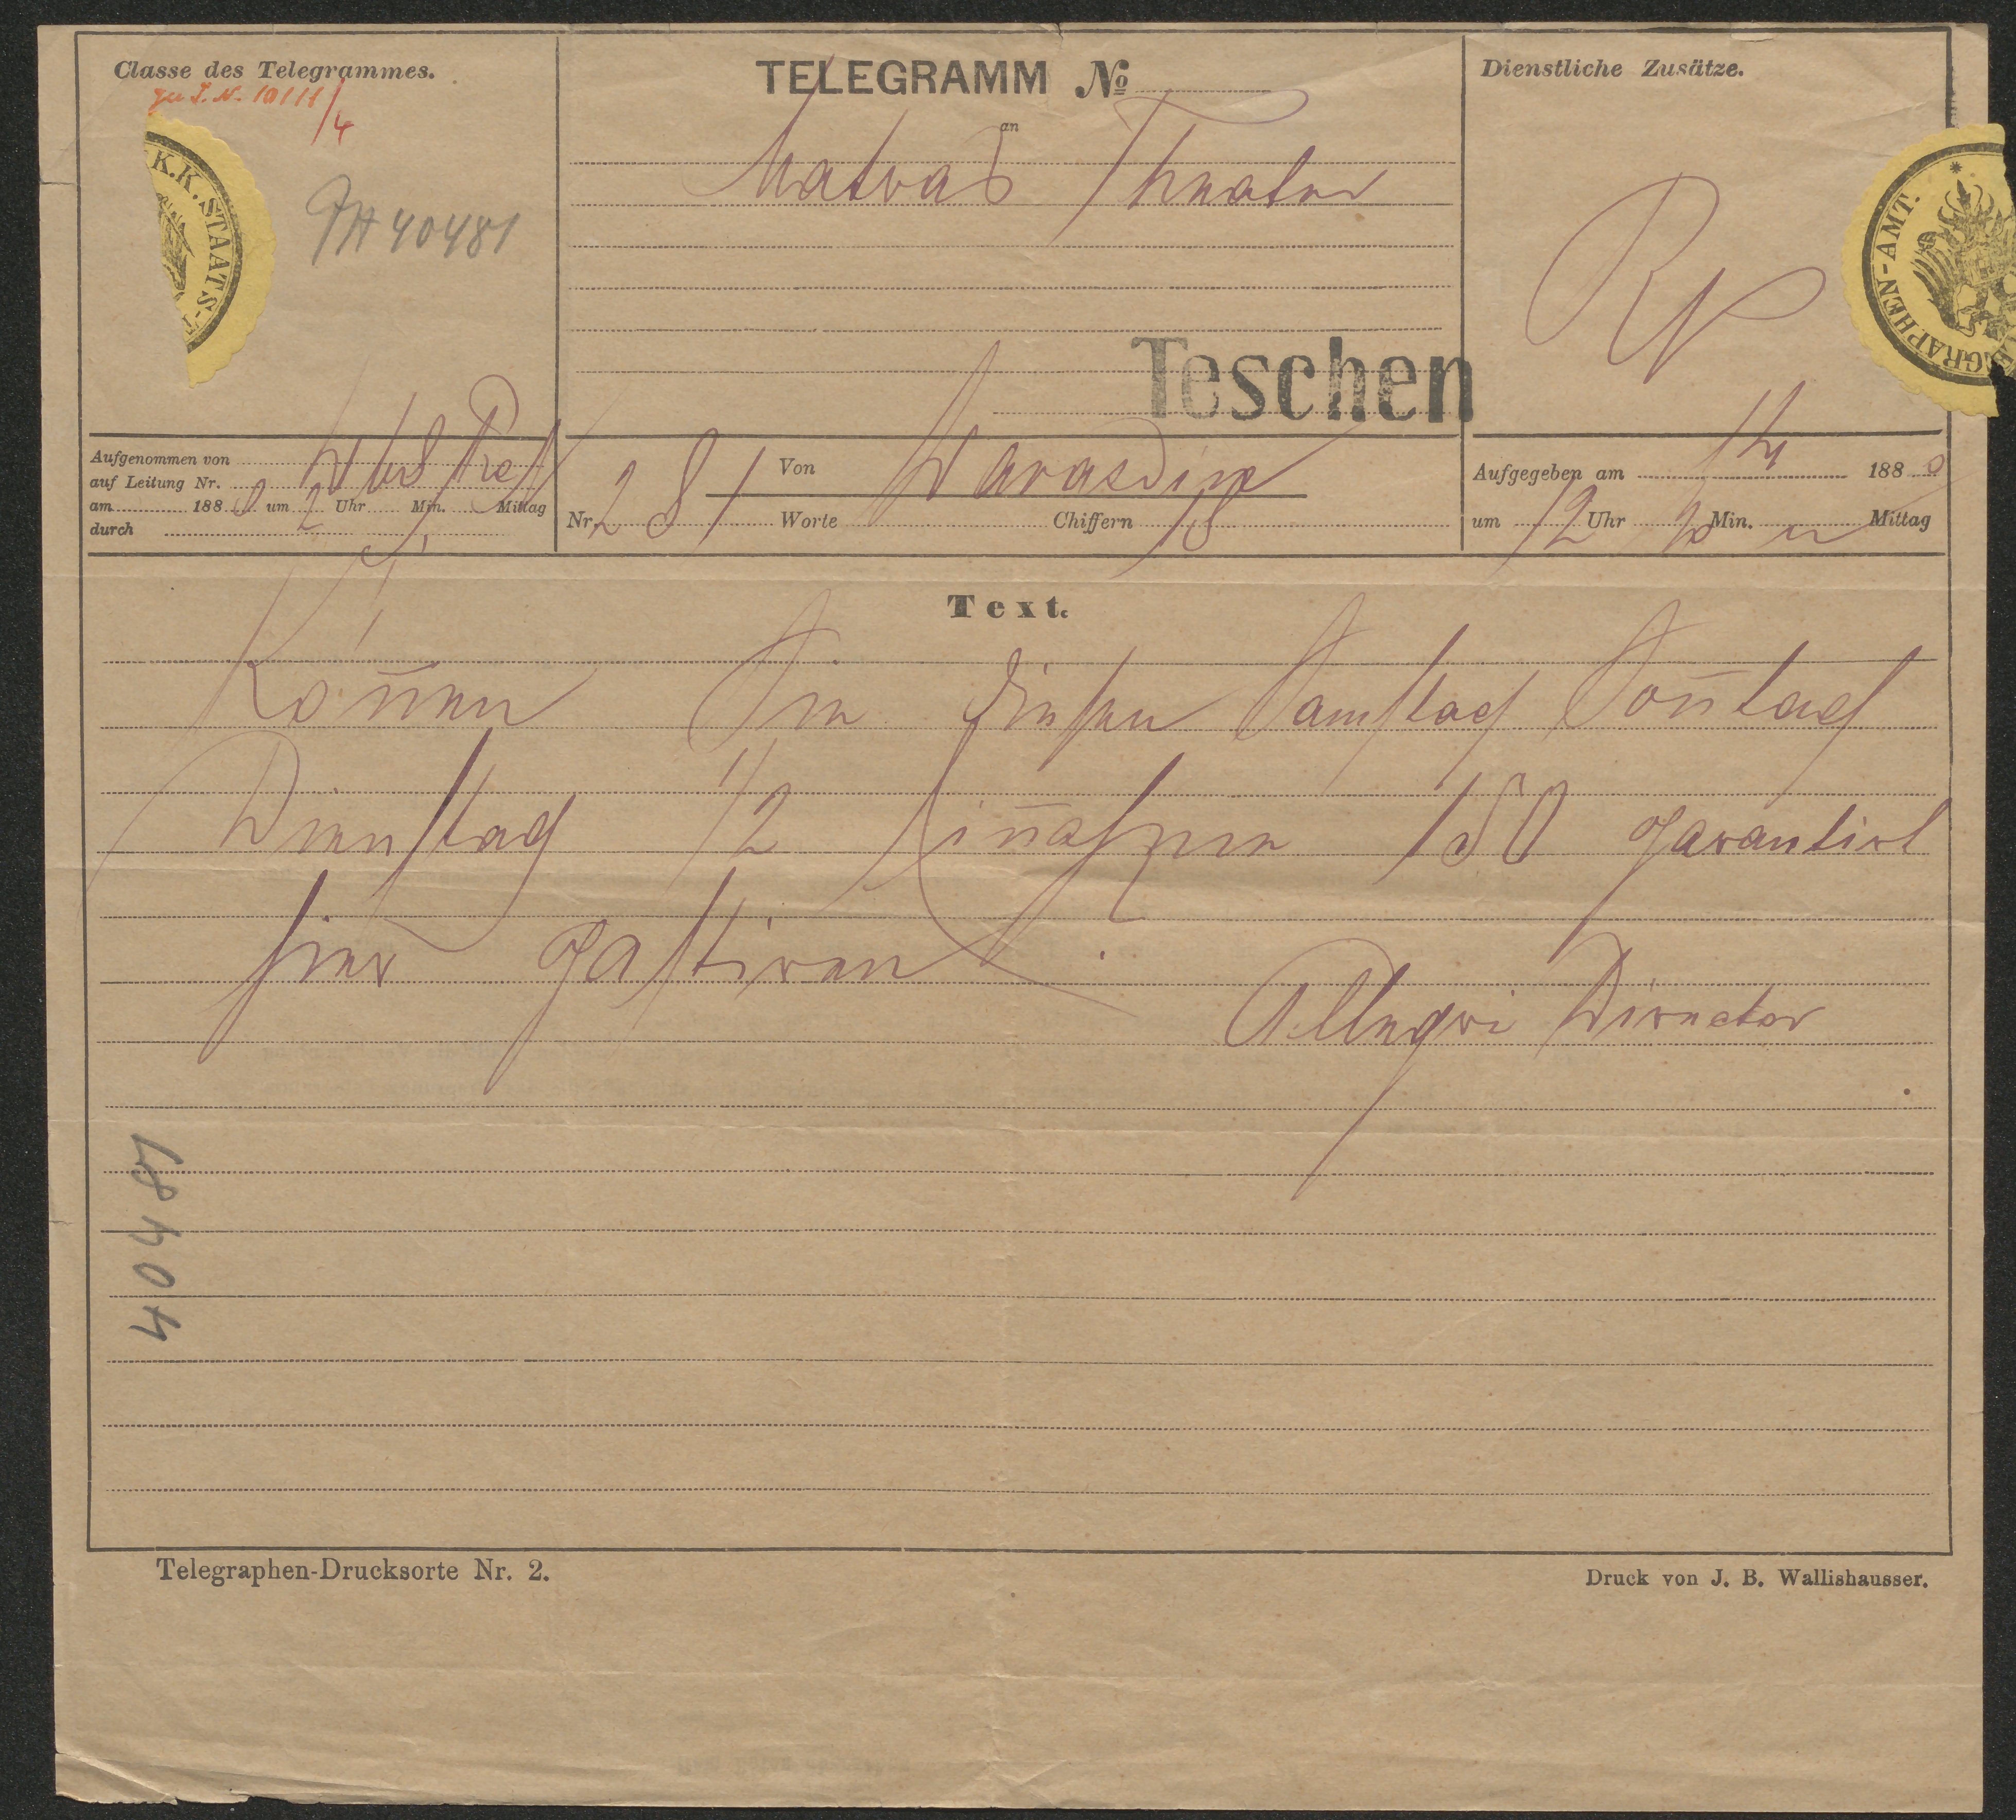 Classe des Telegrammes.
zu I. N. 10111/4
K. K. STAATS-
TH 40481
TELEGRAMM No
an
Matras Theater
Teschen
Dienstliche Zusätze.
Rp
GRAPHEN-AMT.
Aufgenommen von
auf Leitung Nr.
am 188 0 um 2 Uhr Min. Mittag
durch
Nr. 281 Von Warasdin
Worte Chiffern 18
Aufgegeben am 14 1880
um 12 Uhr 20 Min. Mittag
Text.
Kön̅en Sie diesen Samstag Son̅tag
Dienstag 1/2 Ein̅ahme 150 garantirt
hier gastiren
Allegri Director
40481
Telegraphen-Drucksorte Nr. 2.
Druck von J. B. Wallishausser.